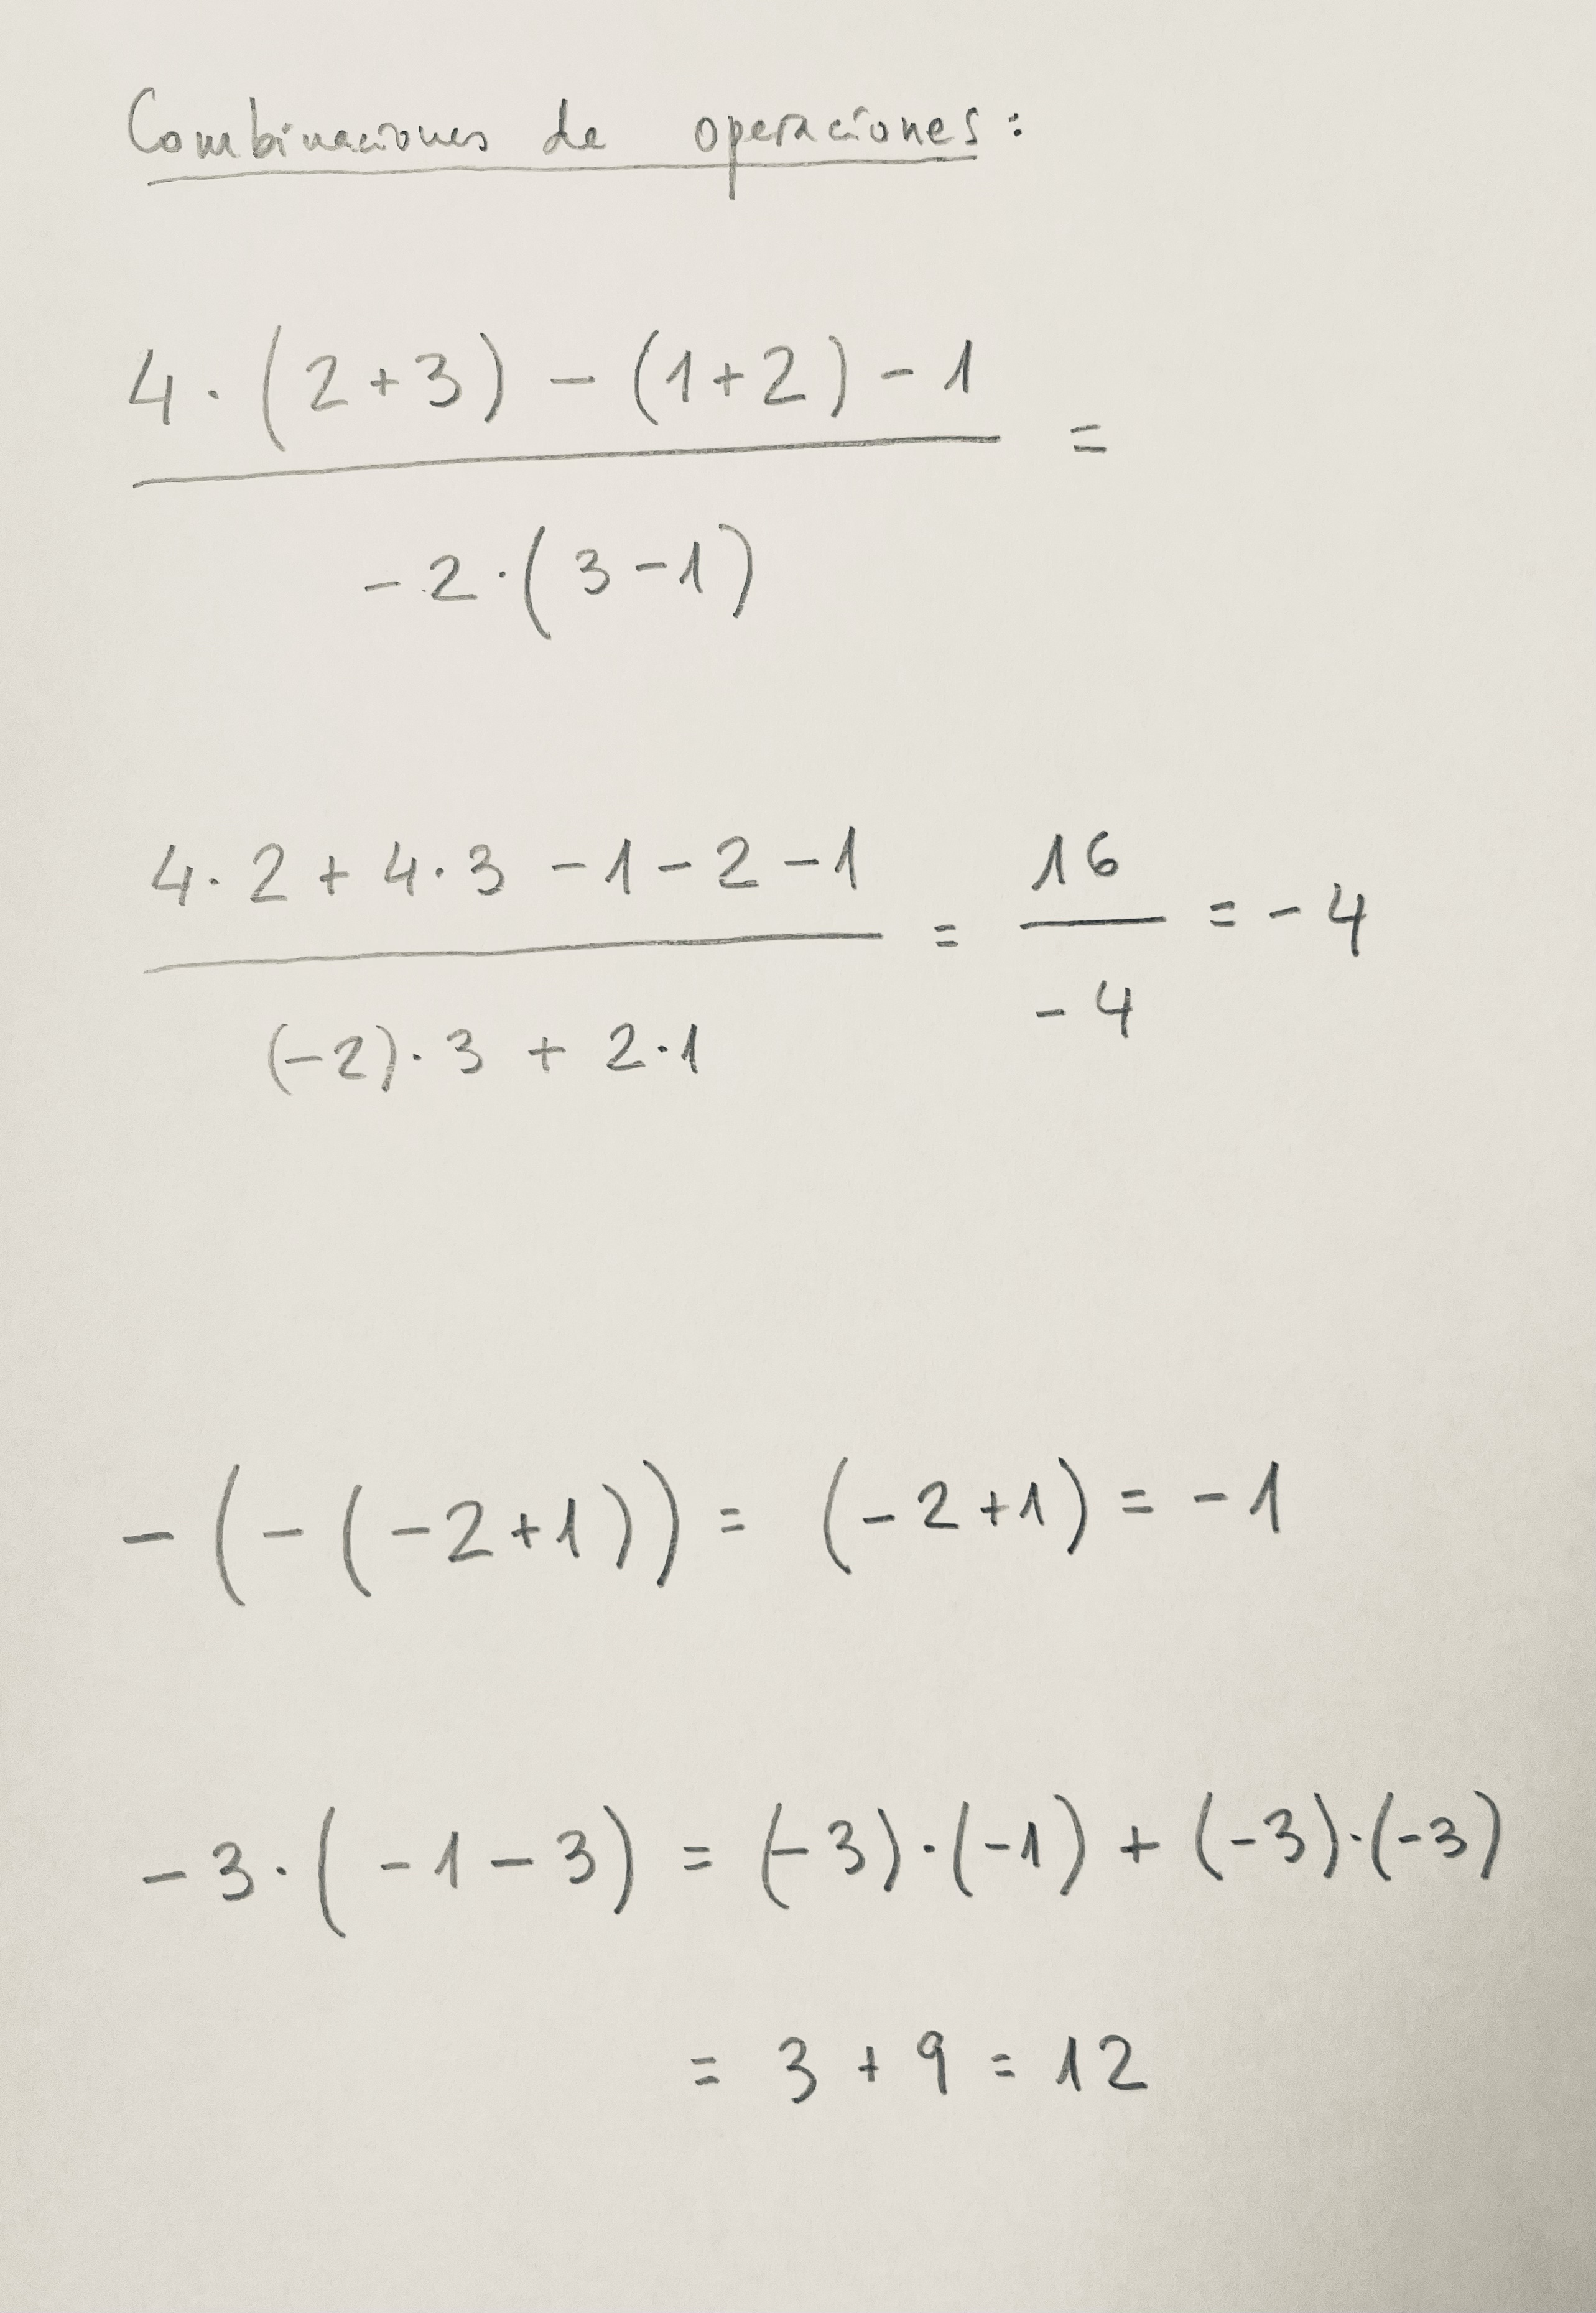 Combinaciones de operaciones:
4 · (2+3) - (1+2) - 1
=
-2 · (3-1)
4 · 2 + 4 · 3 - 1 - 2 - 1
(-2) · 3 + 2 · 1
=
16
-4
= -4
-(-(-2+1)) = (-2+1) = -1
-3 · (-1-3) = (-3) · (-1) + (-3) · (-3)
= 3 + 9 = 12